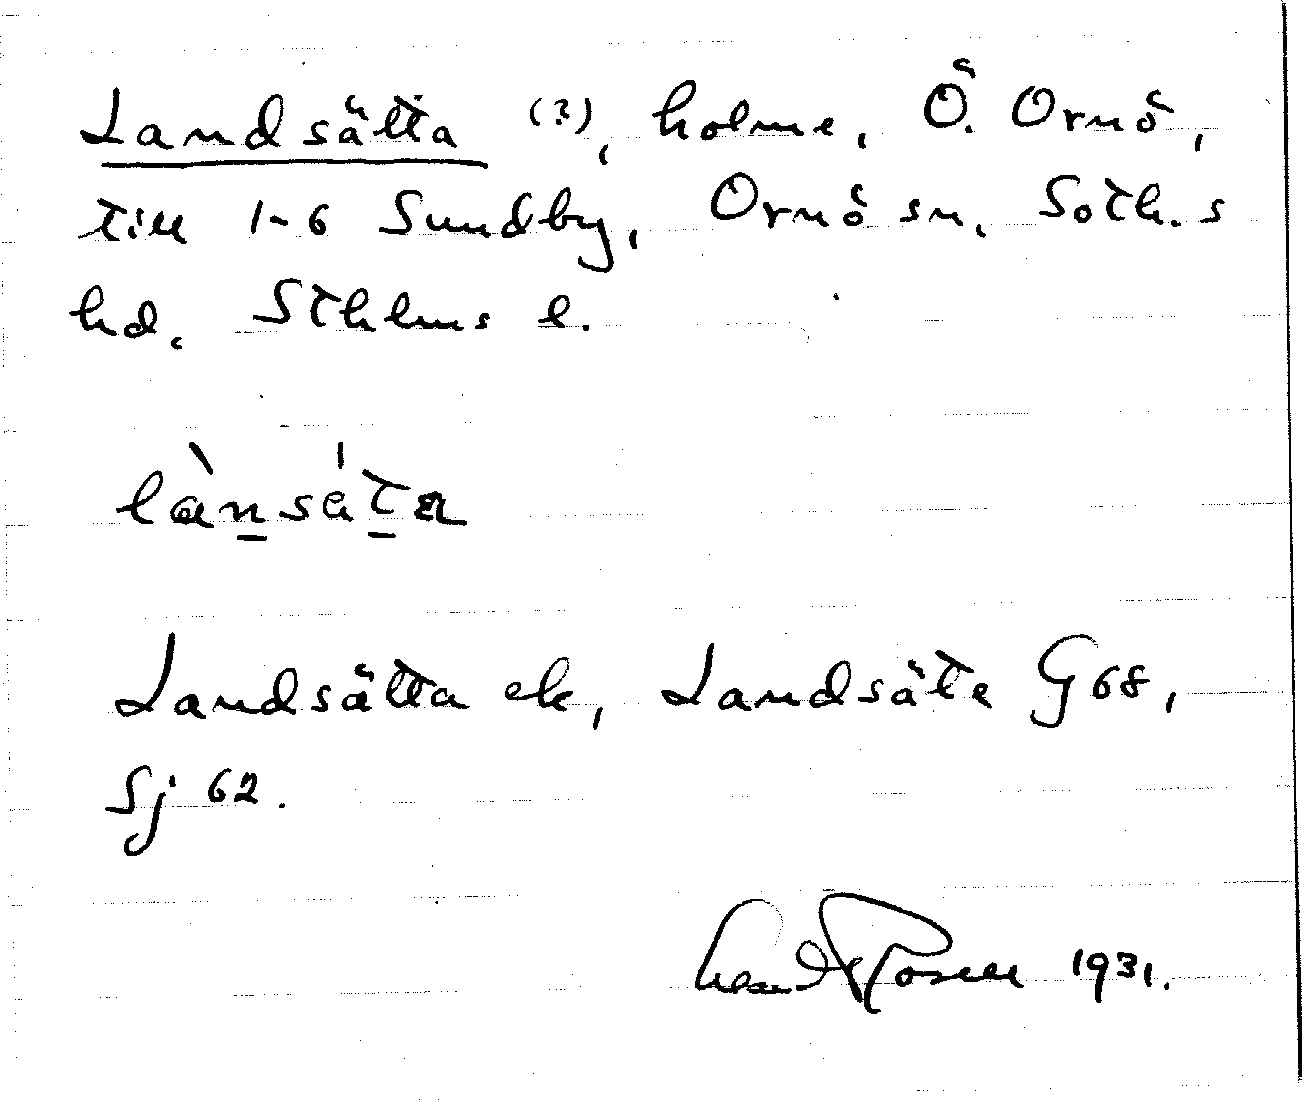 Landsätta (?), holme, Ö. Ornö,
till 1-6 Sundby, Ornö sn, Soth. s
hd, Sthlms l.
lànsá̈ta
Landsätta ek, Landsäte G 68,
Sj 62.
1931.